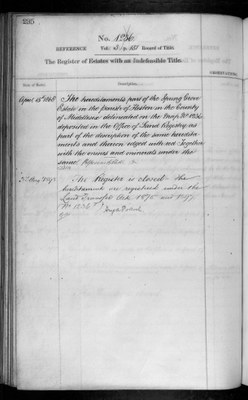 285
No. 1236
REFERENCE Vol: 3 p. 285 Record of Title.
The Register of Estates with an Indefeasible Title.
OBSERVATIONS
Date of Entry. Description.
April 15th 1868 The hereditaments part of the Spring Grove
Estate in the parish of Heston in the County
of Middlesex delineated on the Map No. 1236
deposited in the Office of Land Registry as
part of the description of the same heredita-
ments and thereon edged with red Together
with the mines and minerals under the
same
The Register is closed the
hereditaments are registered under the
Land Transfer Acts 1875 and 1897
No 1236